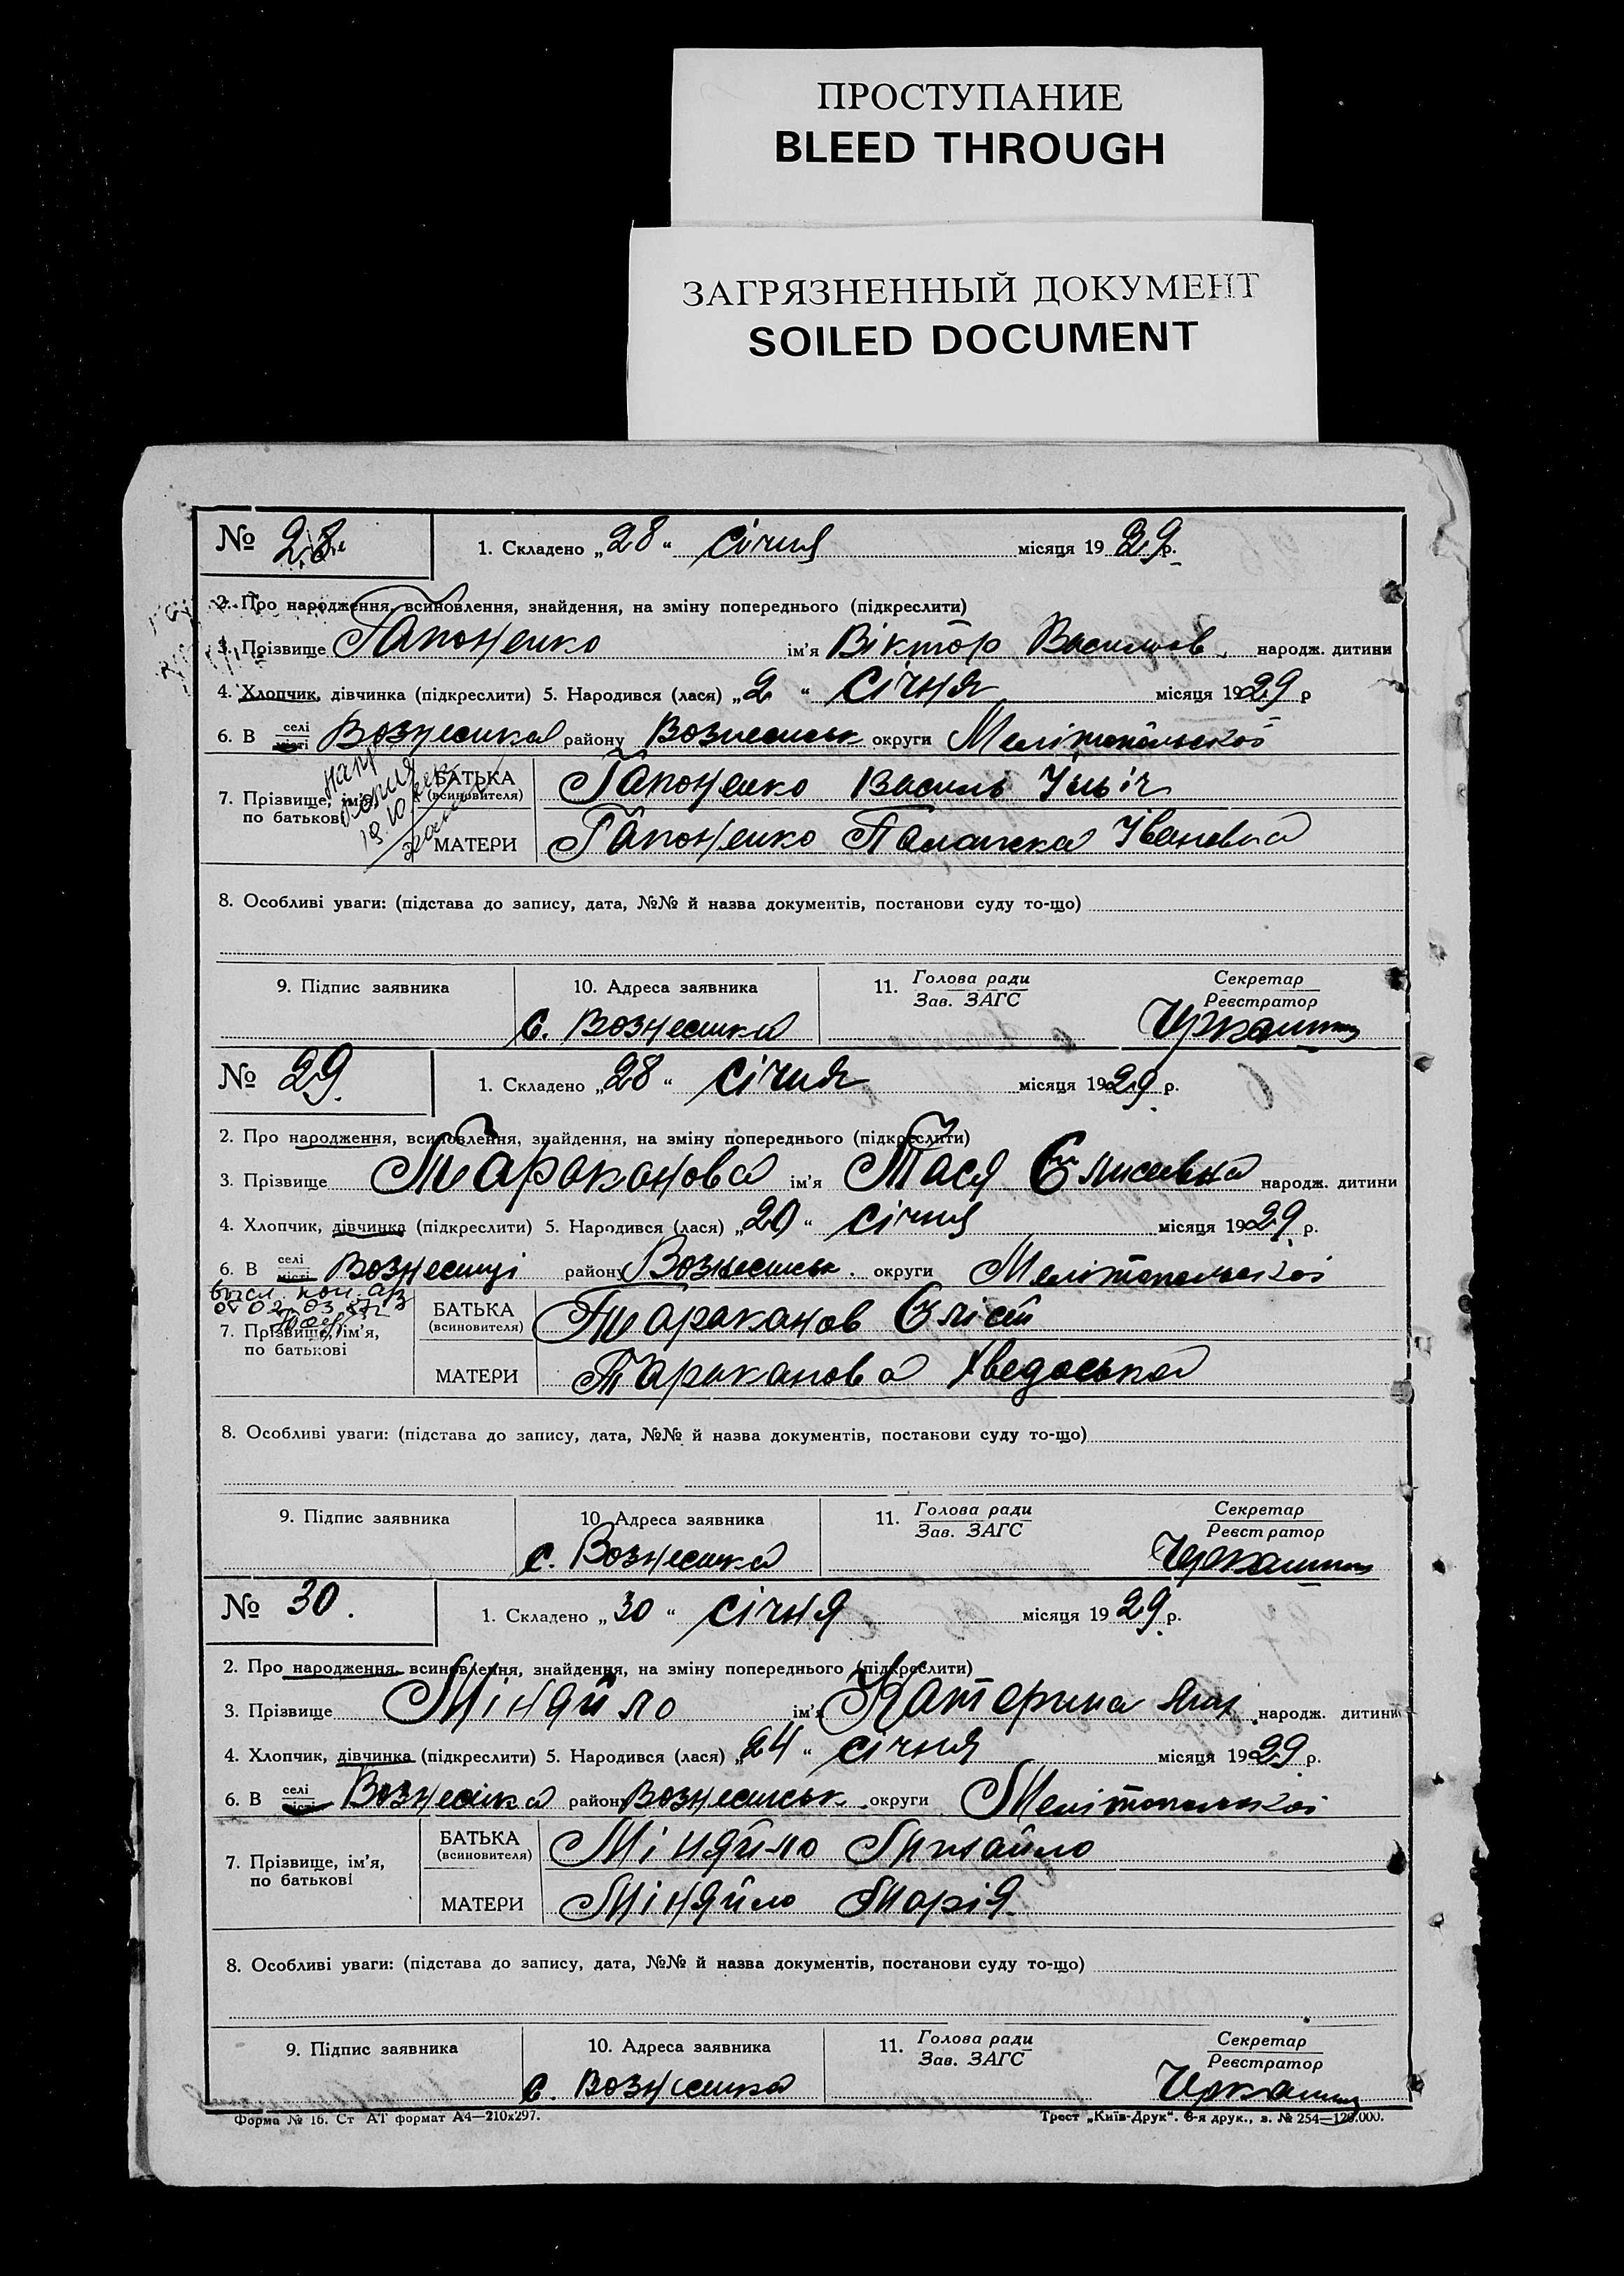 ПРОСТУПАНИЕ
BLEED THROUGH
ЗАГРЯЗНЕННЫЙ ДОКУМЕНТ
SOILED DOCUMENT
№ 28. 1. Складено „28“ Січня місяця 1929 р.
2. Про народження, всиновлення, знайдення, на зміну попереднього (підкреслити)
3. Прізвище Гапоненко ім'я Віктор Васильов. народж. дитини
4. Хлопчик, дівчинка (підкреслити) 5. Народився (лася) „2“ Січня місяця 1929 р
6. В селі місті Вознесинка району Вознесинськ округи Мелітопольської
7. Прізвище, ім'я, по батькові
БАТЬКА (всиновителя) Гапоненко Василь Ільіч
МАТЕРИ Гапоненко Палажка Івановна
8. Особливі уваги: (підстава до запису, дата, №№ й назва документів, постанови суду то-що)
9. Підпис заявника 10. Адреса заявника 11. Голова ради Зав. ЗАГС Секретар Реєстратор
с. Вознесинка
№ 29. 1. Складено „28“ Січня місяця 1929 р.
2. Про народження, всиновлення, знайдення, на зміну попереднього (підкреслити)
3. Прізвище Тараканова ім'я Тася Єлисеевна народж. дитини
4. Хлопчик, дівчинка (підкреслити) 5. Народився (лася) „20“ Січня місяця 1929 р.
6. В селі місті Вознесинці району Вознесинськ. округи Мелітопольської
7. Прізвище, ім'я, по батькові
БАТЬКА (всиновителя) Тараканов Єлісей
МАТЕРИ Тараканова Хведоська
8. Особливі уваги: (підстава до запису, дата, №№ й назва документів, постанови суду то-що)
9. Підпис заявника 10. Адреса заявника 11. Голова ради Зав. ЗАГС Секретар Реєстратор
с. Вознесинка
№ 30. 1. Складено „30“ Січня місяця 1929 р.
2. Про народження, всиновлення, знайдення, на зміну попереднього (підкреслити)
3. Прізвище Міняйло ім'я Катерина Мих. народж. дитини
4. Хлопчик, дівчинка (підкреслити) 5. Народився (лася) „24“ Січня місяця 1929 р.
6. В селі місті Вознесінка району Вознесинськ. округи Мелітопольської
7. Прізвище, ім'я, по батькові
БАТЬКА (всиновителя) Міняйло Михайло
МАТЕРИ Міняйло Марія
8. Особливі уваги: (підстава до запису, дата, №№ й назва документів, постанови суду то-що)
9. Підпис заявника 10. Адреса заявника 11. Голова ради Зав. ЗАГС Секретар Реєстратор
с. Вознесинка
Форма № 16. Ст АТ формат А4—210х297. Трест „Київ-Друк“. 6-я друк., з. № 254—120.000.